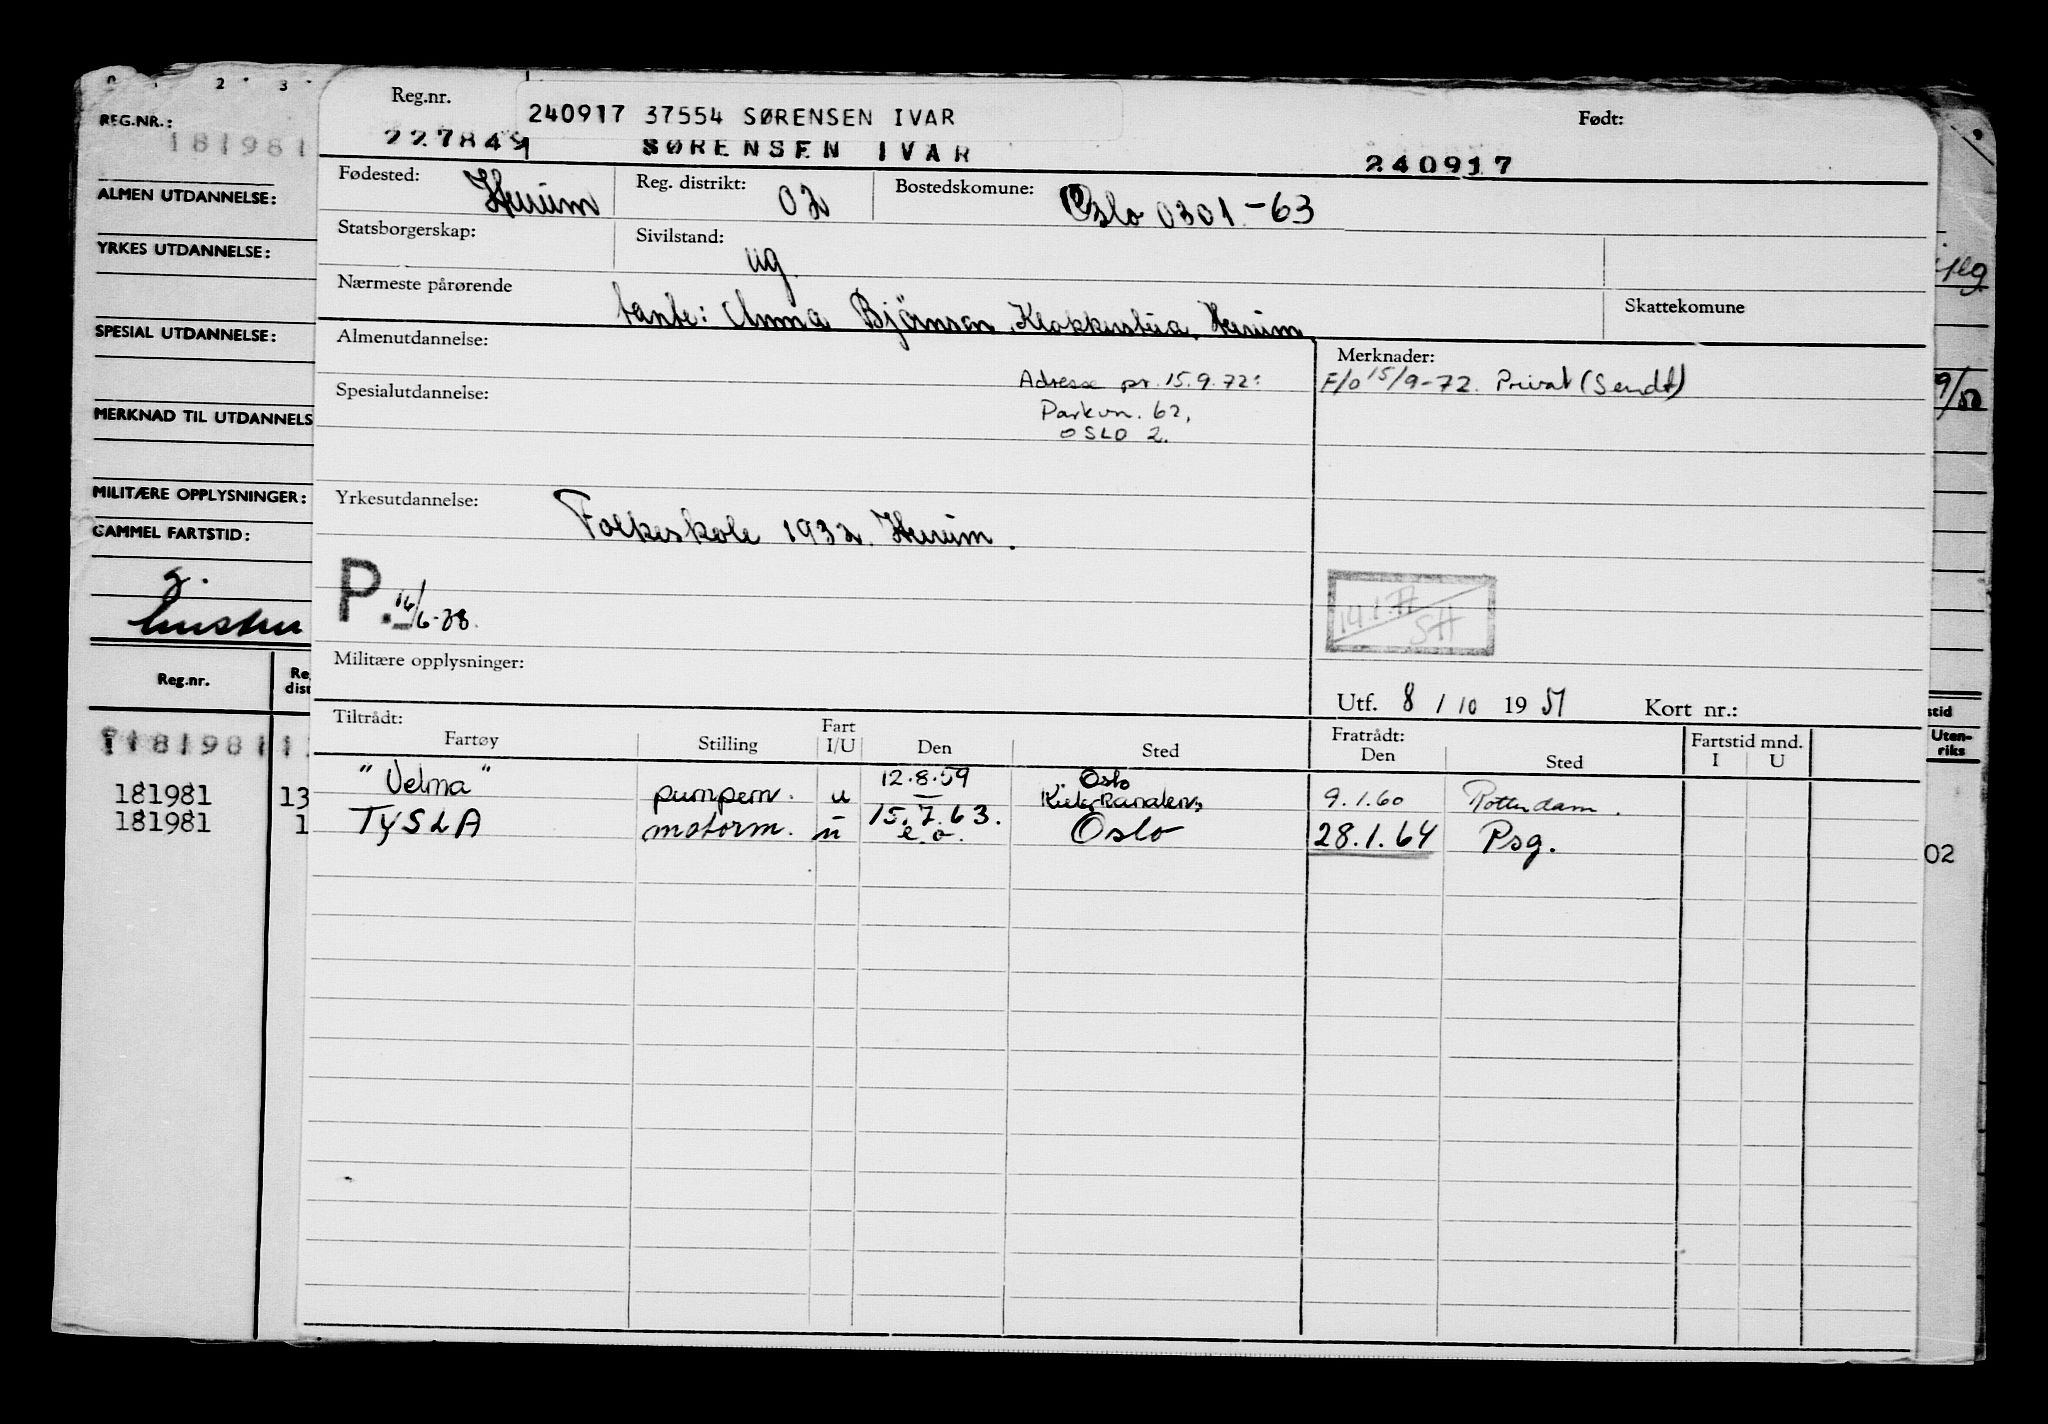 2 3
REG.NR.:
181981
ALMEN UTDANNELSE:
YRKES UTDANNELSE:
SPESIAL UTDANNELSE:
MERKNAD TIL UTDANNELS
MILITÆRE OPPLYSNINGER:
GAMMEL FARTSTID:
Reg.nr.
Re
dist
181981
181981 13
181981 1
Reg.nr. 240917 37554 SØRENSEN IVAR Født:
227849 SØRENSEN IVAR 240917
Fødested: Hurum Reg. distrikt: 02 Bostedskomune: Oslo 0301-63
Statsborgerskap: Sivilstand: ug.
Nærmeste pårørende tante: Anna Bjørnsen, Klokkerstua, Hurum Skattekomune
Almenutdannelse: Merknader:
Adresse pr. 15.9.72: F/o 15/9-72. Privat (Sendt)
Spesialutdannelse: Parkvn. 62,
OSLO 2.
Yrkesutdannelse: Folkeskole 1932. Hurum.
P. 16/6-78.
SH
Militære opplysninger:
Utf. 8 / 10 19 51 Kort nr.:
Tiltrådt: Fratrådt: Fartstid mnd.
Fartøy Stilling Fart I/U Den Sted Den Sted I U
"Velma" pumpem. u 12.8.59 Oslo Kielerkanalen, 9.1.60 Rotterdam.
TYSLA motorm. u 15.7.63. e.o. Oslo 28.1.64 Psg.
9/52
stid
Uten-
riks
02